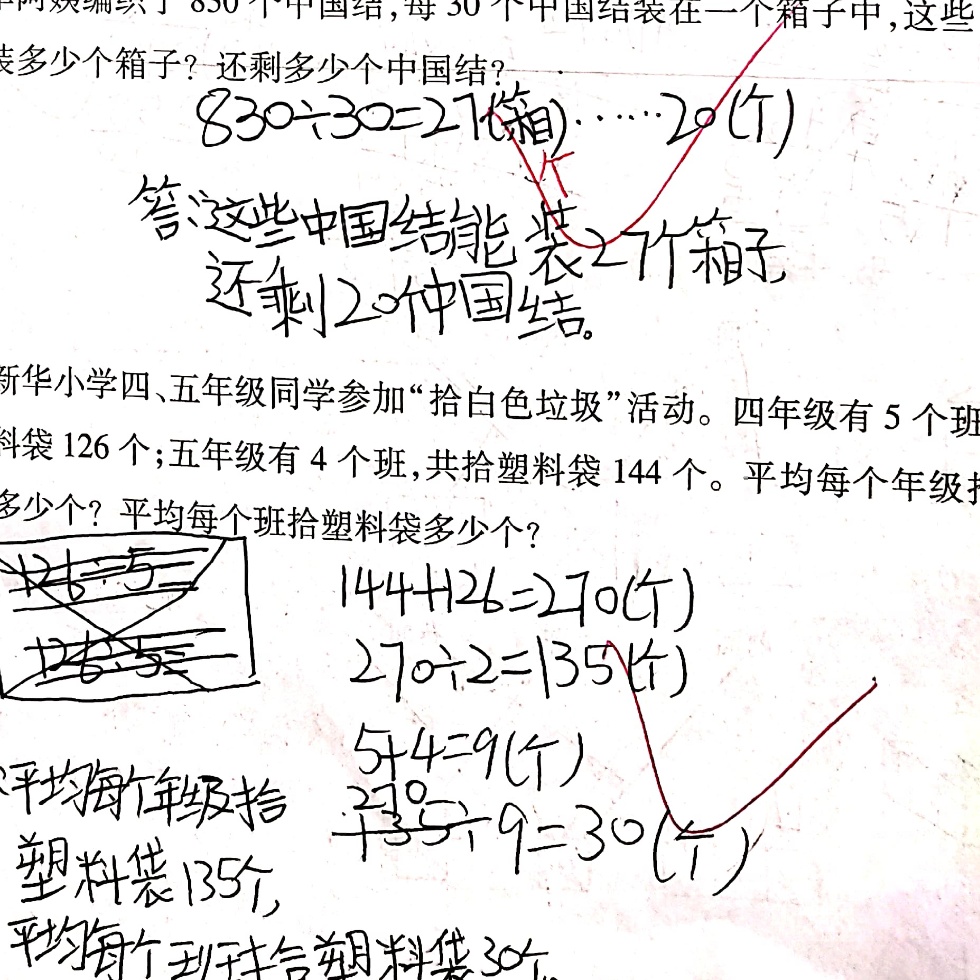 阿姨编织了 830 个中国结,每 30 个中国结装在一个箱子中,这些
装多少个箱子? 还剩多少个中国结?
830÷30=27(箱)······20(个)
个
答:这些中国结能装27个箱子,
还剩20个中国结。
新华小学四、五年级同学参加“拾白色垃圾”活动。四年级有 5 个班
料袋 126 个;五年级有 4 个班,共拾塑料袋 144 个。平均每个年级
多少个? 平均每个班拾塑料袋多少个?
126÷5=
126÷5=
144+126=270(个)
270÷2=135(个)
5+4=9(个)
270
135÷9=30(个)
平均每个年级拾
塑料袋135个,
平均每个班拾塑料袋30个。